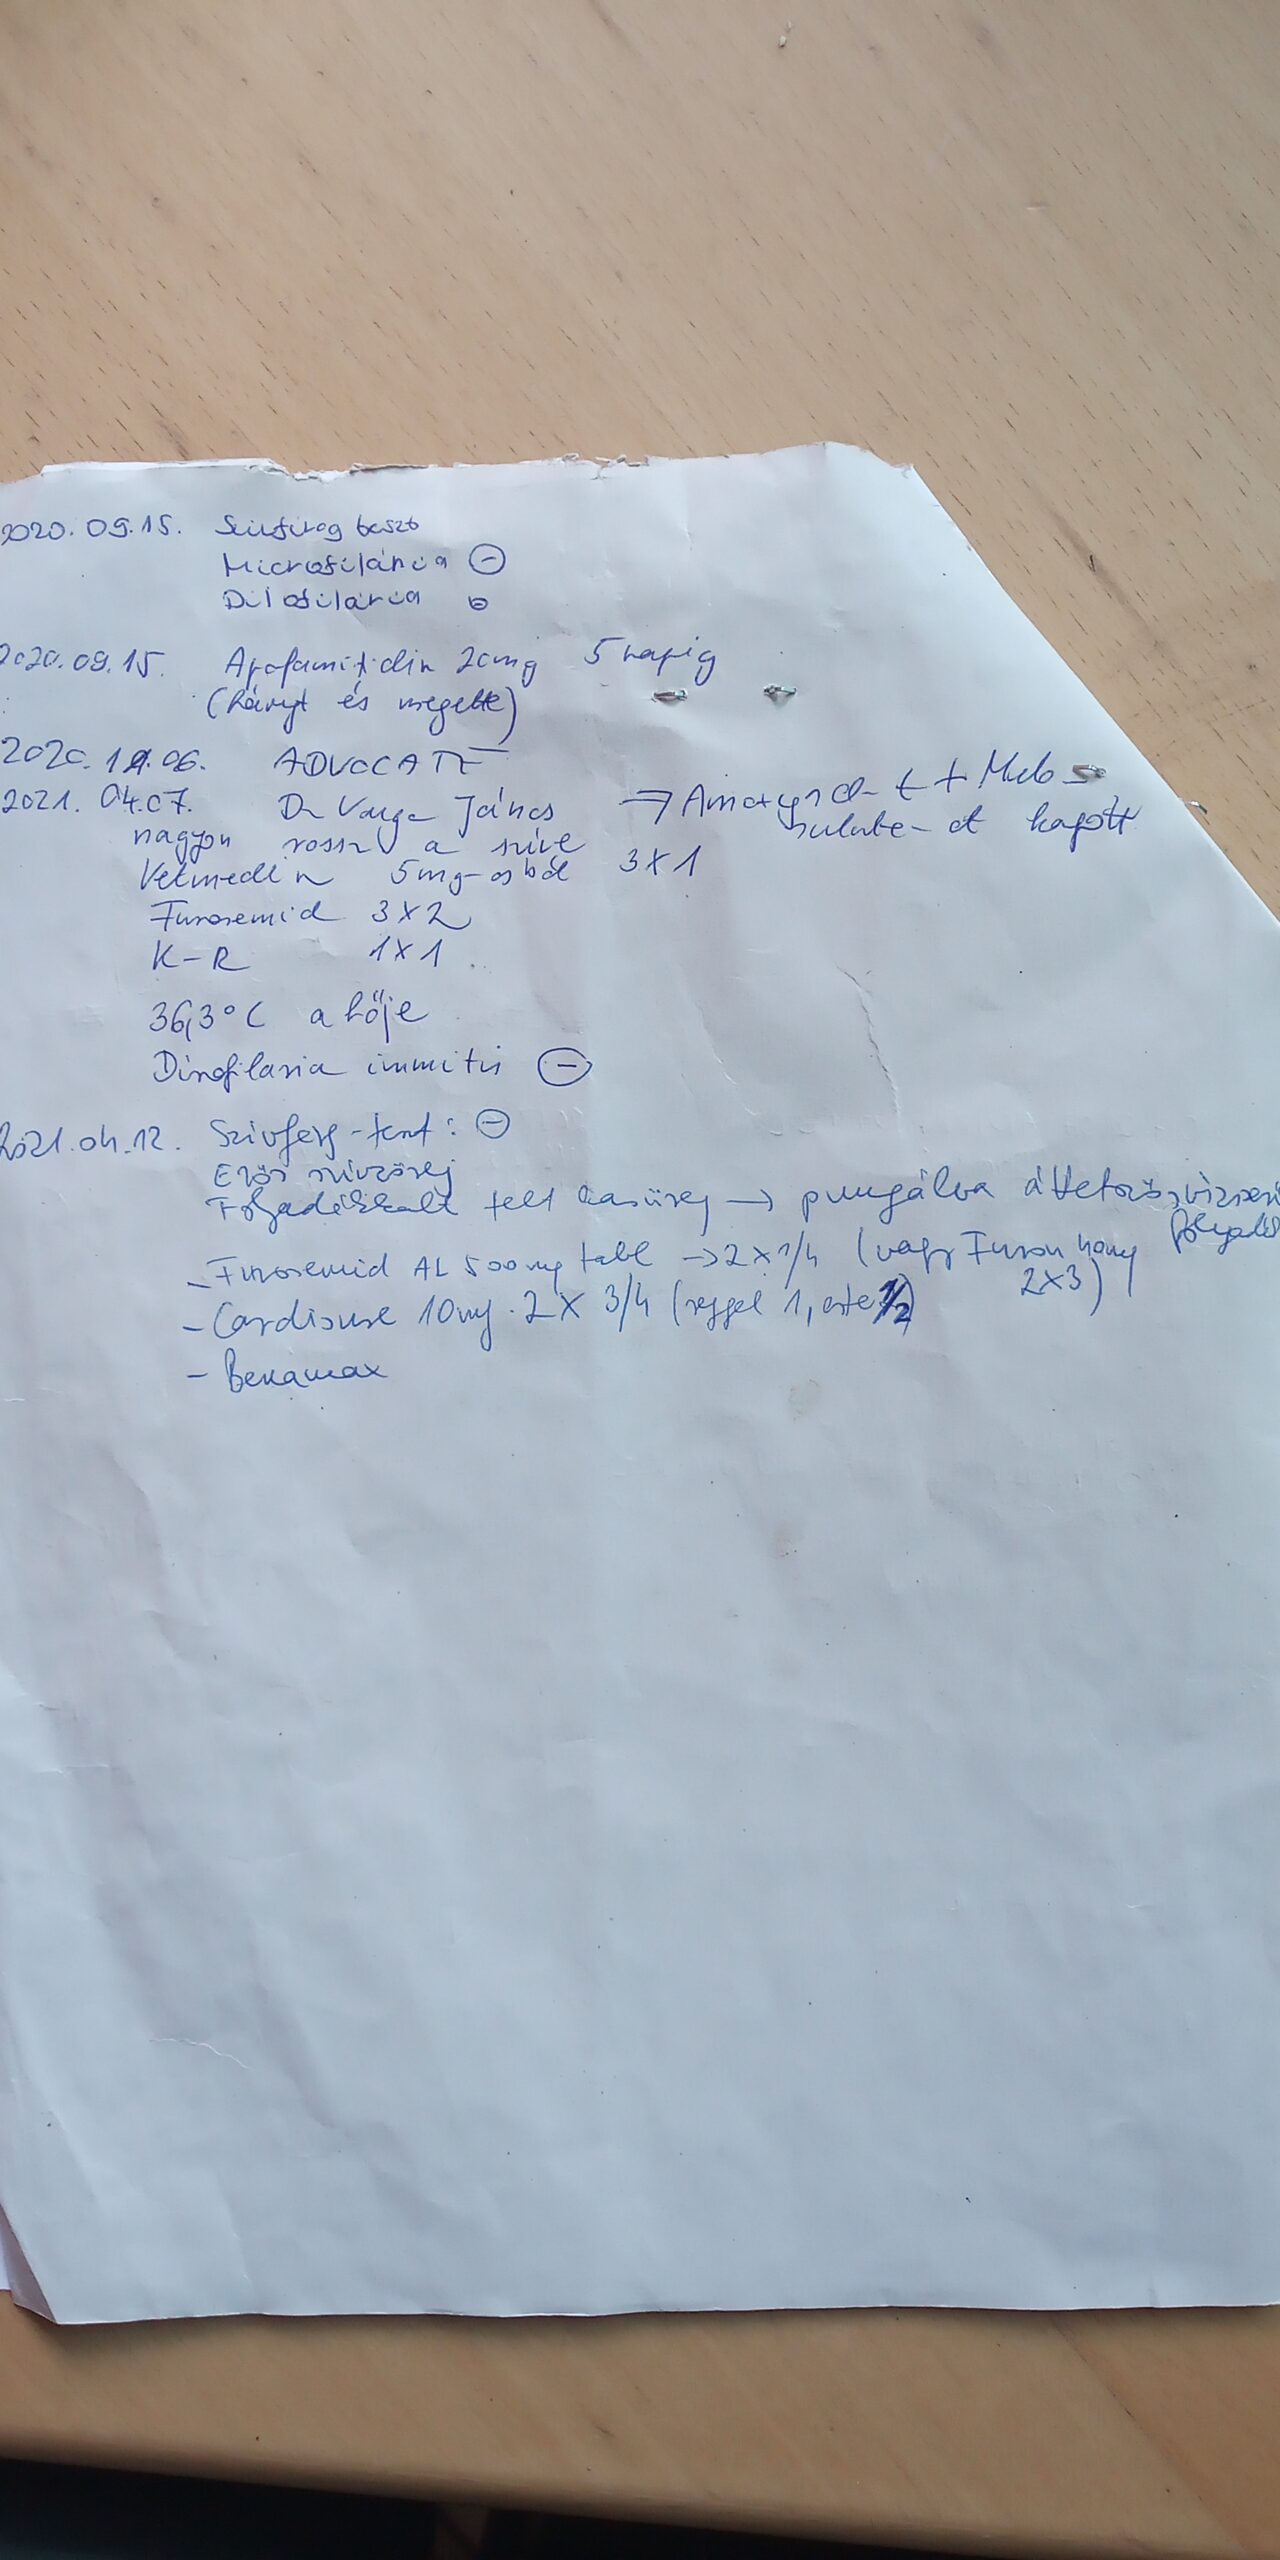 2020.09.15. Szívféreg teszt
Microfilária ⊖
Dilofilária ⊖
2020.09.15. Apofamitidin 20mg 5 napig
(hányt és megette)
2020.11.06. ADVOCATE
2021.04.07. Dr Varga János → + Melo
nagyon rossz a szíve sulute-ot kapott
Vetmedin 5mg-osból 3x1
Furosemid 3x2
K-R 1x1
36,3°C a hője
Dirofilaria immitis ⊖
2021.04.12. Szívférg-teszt: ⊖
Erős szívzörej
Folyadékkal telt hasüreg → pungálva áttetsző, vízszerű
folyadék
- Furosemid AL 500mg tabl → 2x1/4 (vagy Furon 40mg
2x3)
- Cardisure 10mg 2x 3/4 (reggel 1, este 1/2)
- Benamax